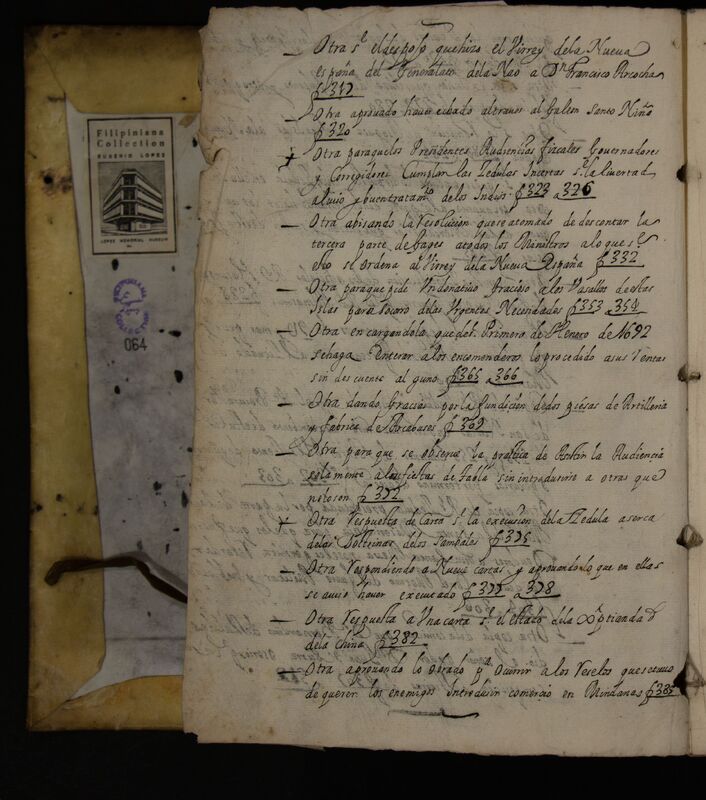 Filipiniana
Collection
EUGENIO LOPEZ
LOPEZ MEMORIAL MUSEUM
064
Otra sᵉ el despojo que hizo el Virrey dela Nueva
españa del Generalato dela Nao a Dⁿ Francisco Arcocha
f 317
Otra aprovado haver echado al traves al Galeon Santo Niño
f 320
Otra paraquelos Presidentes Audiencias fiscales Governadores
y Corregidores Cumplan las Zedulas Incertas sᵉ la livertad
alivio y buentratamᵗᵒ delos Indios f 323 a 326
Otra abisando la Resolucion quese atomado de descontar la
tercera parte de gages atodos los Ministros alo que sᵉ
esto se ordena al Virrey dela Nueva España f 332
Otra paraque pide Vn donativo Gracioso a los Vasallos de estas
Islas para Socorro delas Urgentes Necesidades f 353 a 354
Otra en cargandola que desde Primero de Henero de 1692
sehaga enterar a los encomenderos lo procedido asus Rentas
sin descuento alguno f 365 a 366
Otra dando Gracias por la fundicion dedos piesas de Artilleria
y fabrica de Arcabuses f 369
Otra para que se observe la practica de Asistir la Audiencia
solamente a las fiestas de Tabla sin introducirse a otras que
nolo son f 372
Otra Respuesta de Carta sᵉ la execusion dela Zedula aserca
delas Doctrinas delos Sambales f 375
Otra Respondiendo a Nueve cartas y aprovando lo que en ellas
se aviso haver executado f 377 a 378
Otra Respuesta a Vna carta sᵉ el estado dela Xptiandad
dela China f 382
Otra aprovando lo obrado pᵃ Ocurrir a los Reselos que se tuvo
de querer los enemigos Introdusir comercio en Mindanao f 385